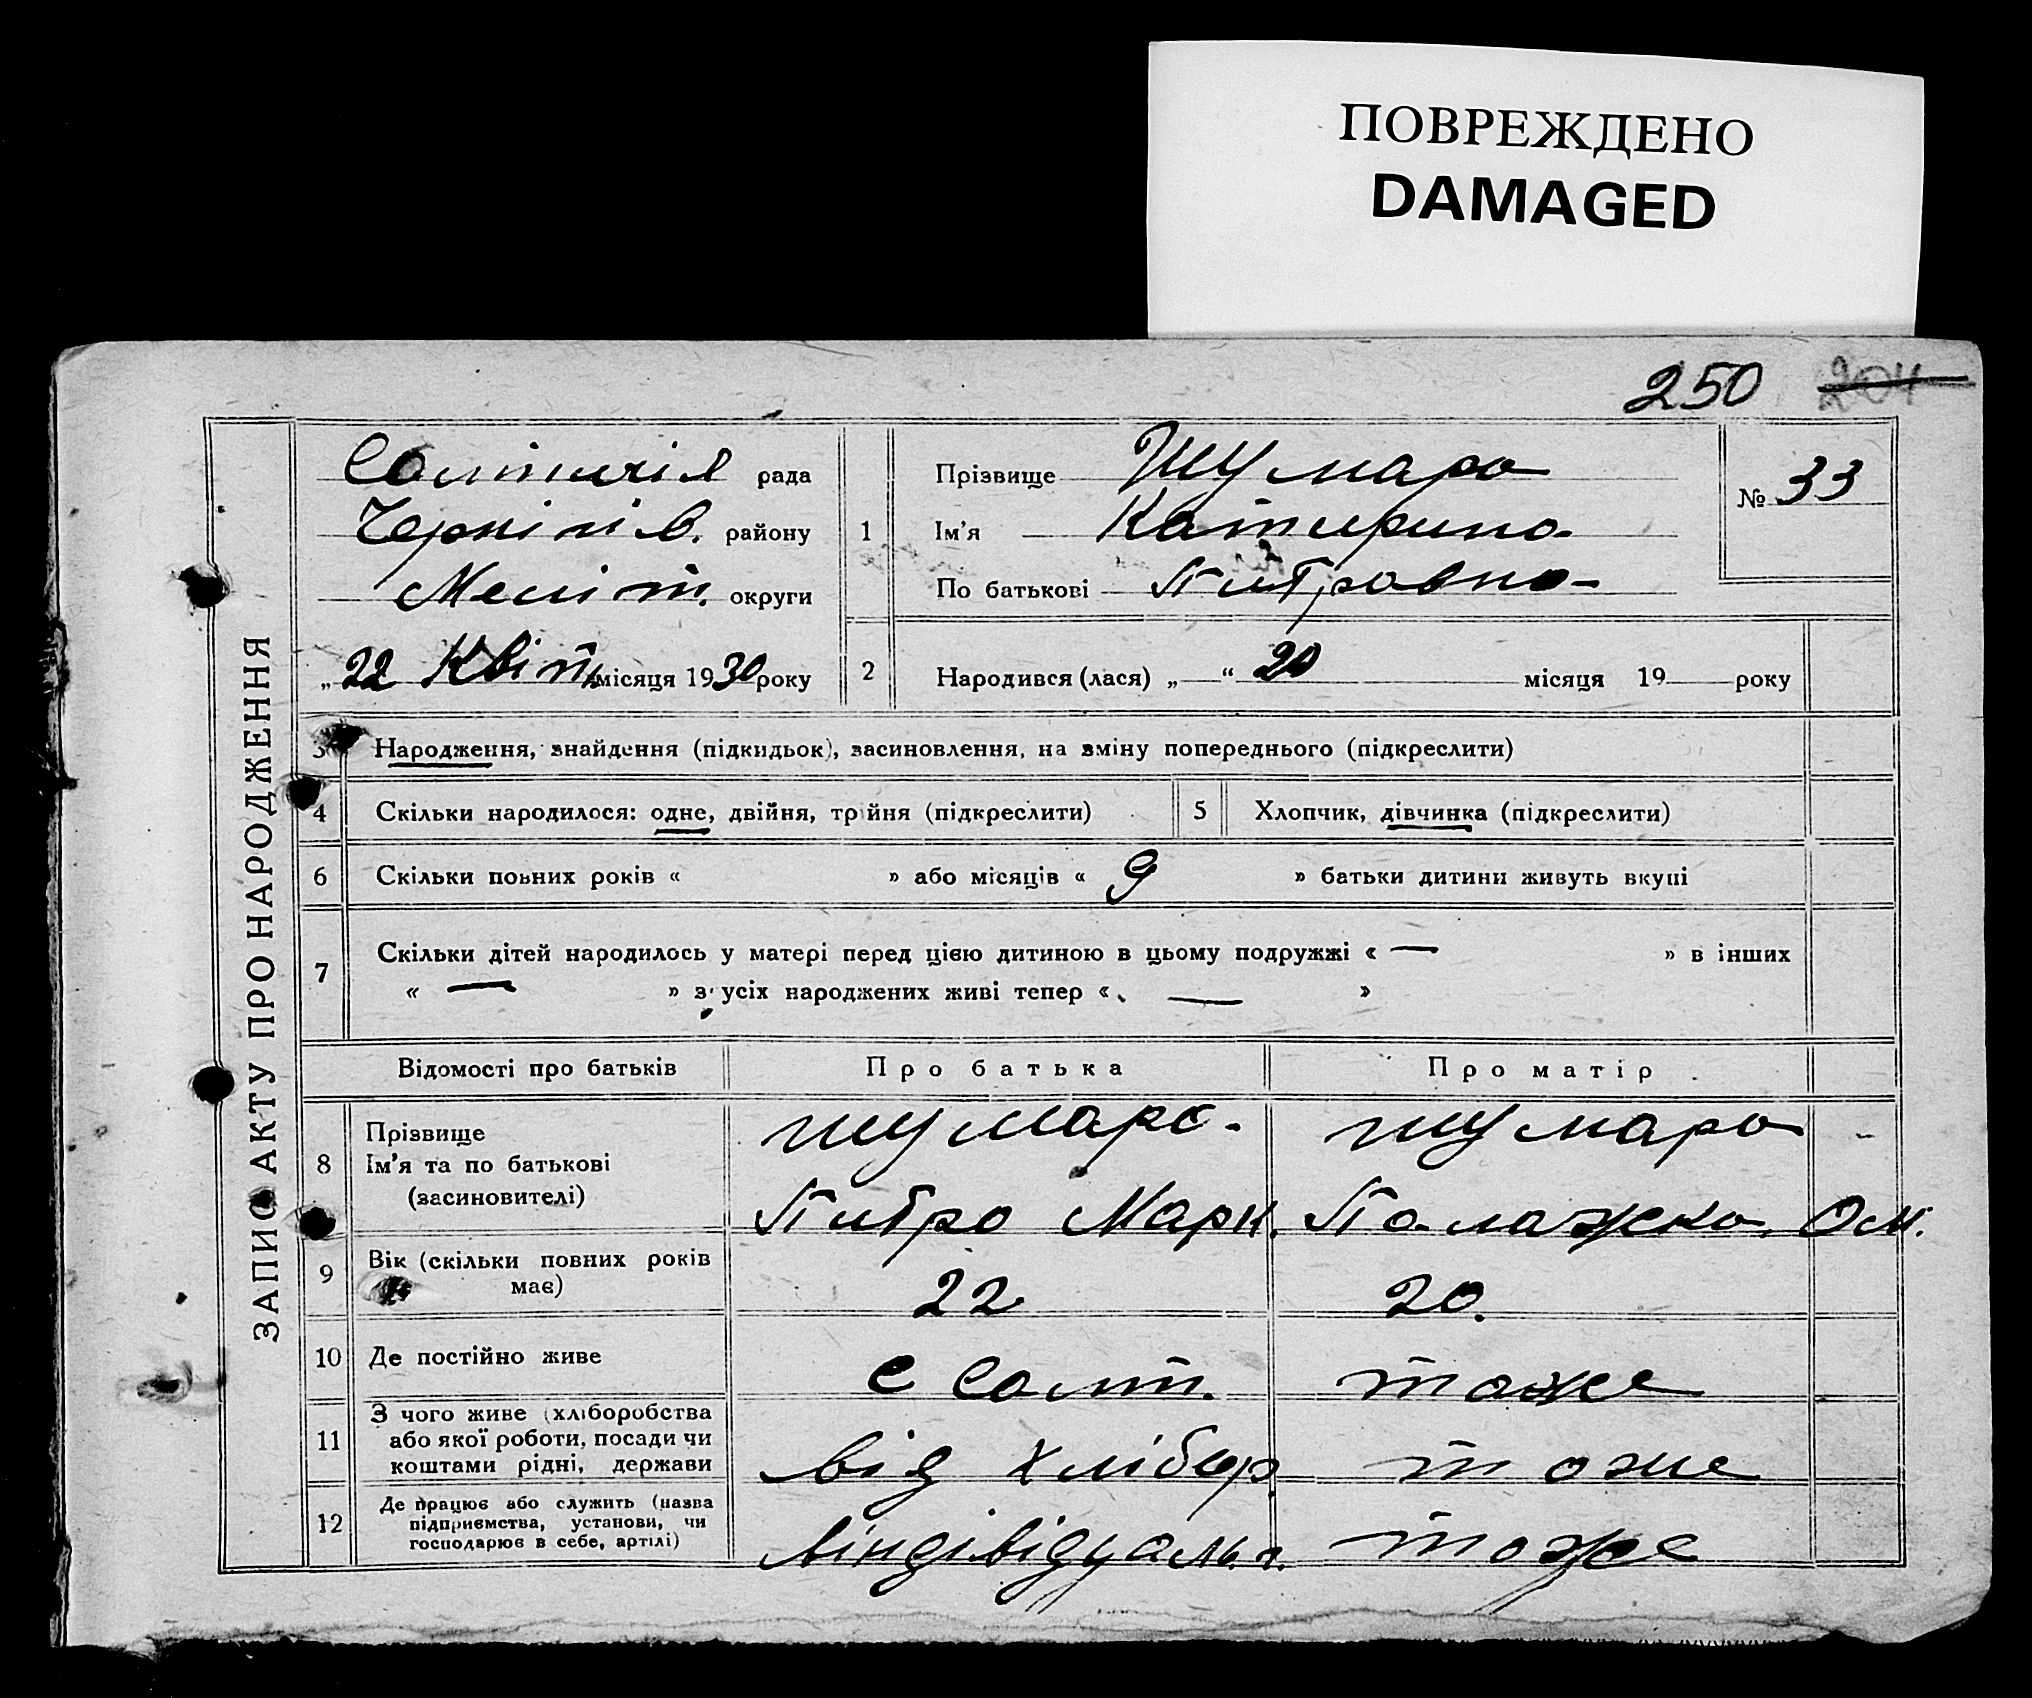 ПОВРЕЖДЕНО
DAMAGED
250 204
ЗАПИС АКТУ ПРО НАРОДЖЕННЯ
рада
Чернігів. району
Меліт. округи
„22 Квітн місяця 1930 року
1
Прізвище Шумара
Ім'я Катерина
По батькові Петровна
№ 33
2 Народився (лася) „ “ 20 місяця 19 року
3 Народження, знайдення (підкидьок), засиновлення, на зміну попереднього (підкреслити)
4 Скільки народилося: одне, двійня, трійня (підкреслити) 5 Хлопчик, дівчинка (підкреслити)
6 Скільки повних років « » або місяців « 9 » батьки дитини живуть вкупі
7 Скільки дітей народилось у матері перед цією дитиною в цьому подружжі « — » в інших
« — » з усіх народжених живі тепер « — »
Відомості про батьків Про батька Про матір
8 Прізвище
Ім'я та по батькові
(засиновителі)
Шумара Шумара
Петро Марк. Палажка Ом.
9 Вік (скільки повних років
має) 22 20.
10 Де постійно живе с Салт. тоже
11 З чого живе (хліборобства
або якої роботи, посади чи
коштами рідні, держави
від хлібор тоже
12 Де працює або служить (назва
підприємства, установи, чи
господарює в себе, артілі)
тоже